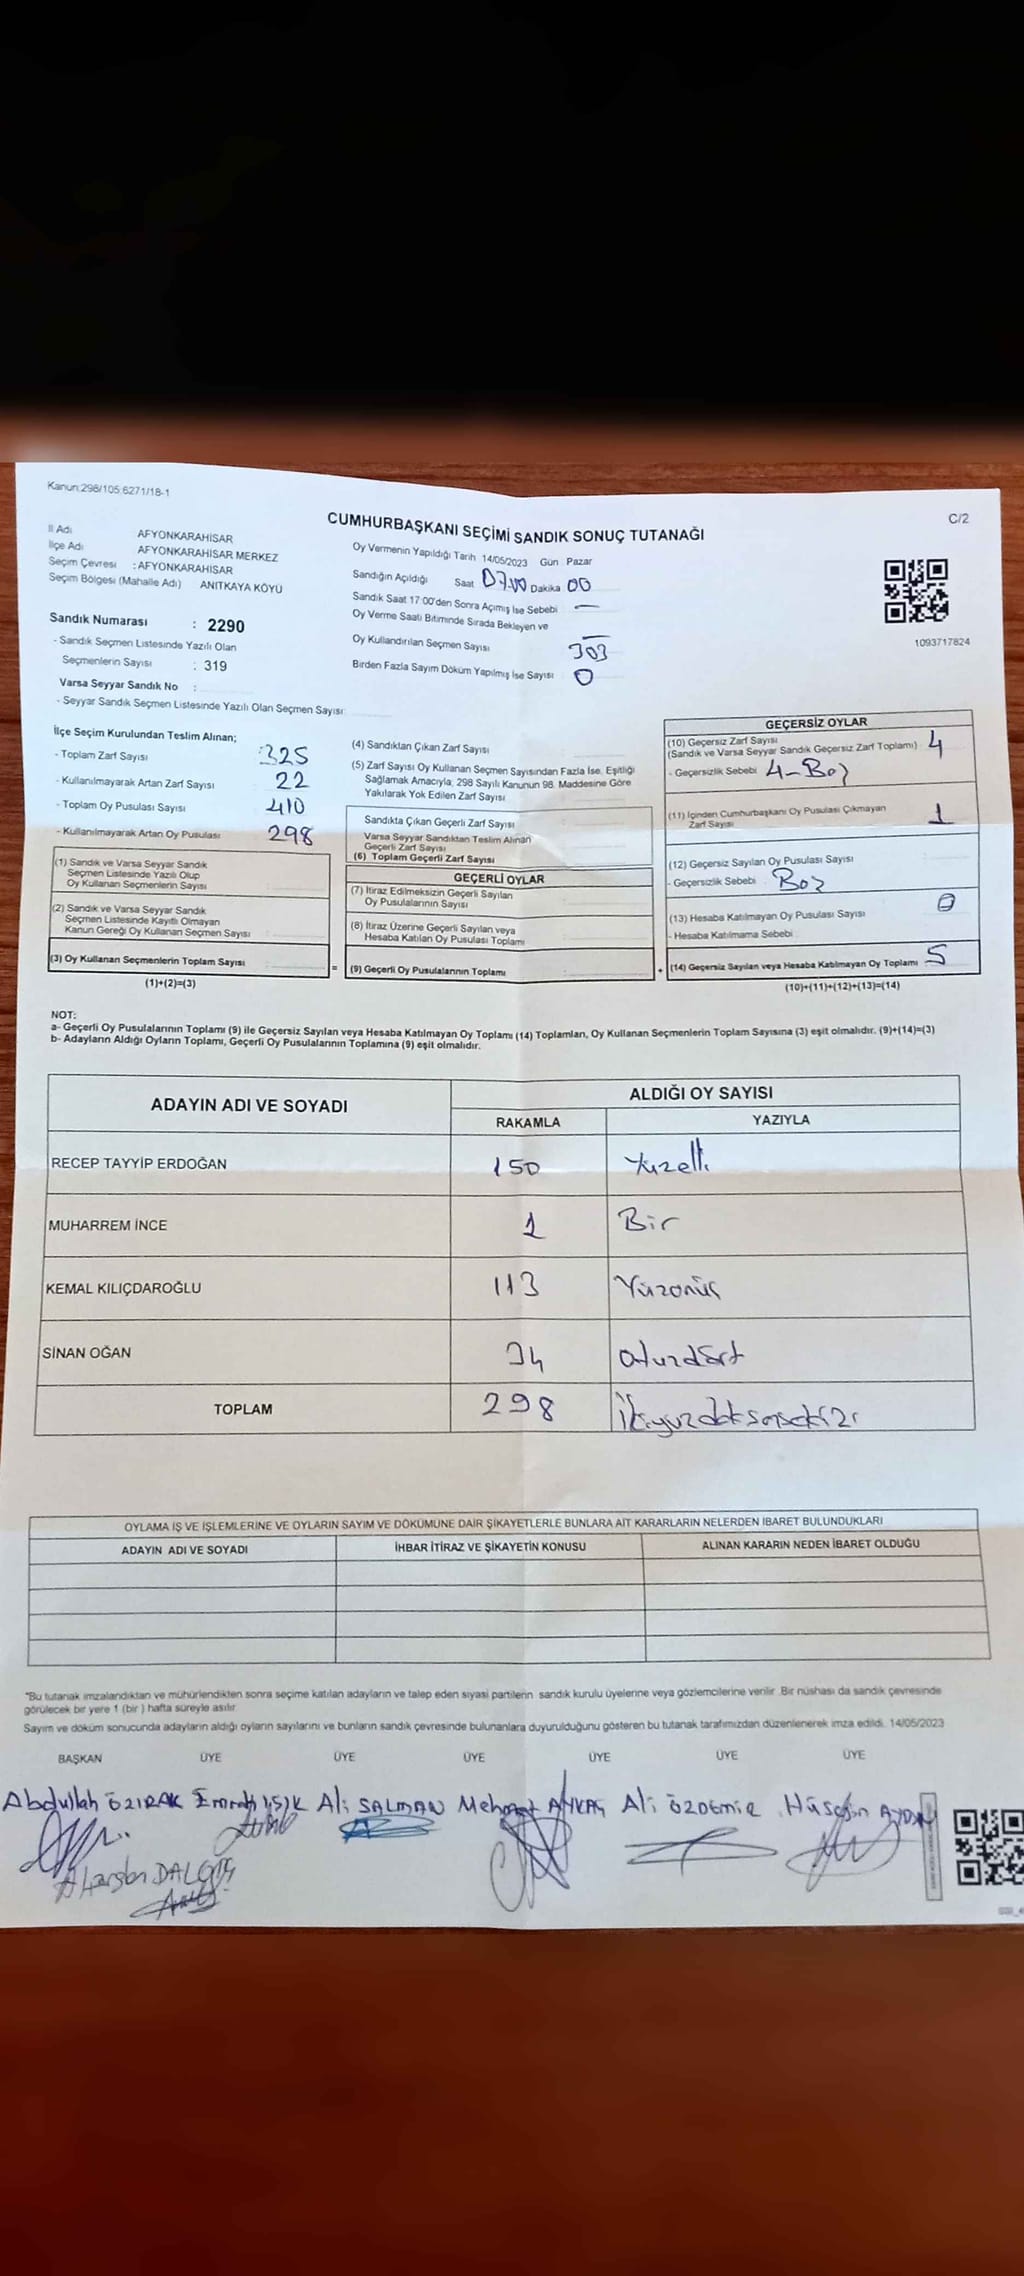 Kanun:298/105:6271/18-1
C/2
CUMHURBAŞKANI SEÇİMİ SANDIK SONUÇ TUTANAĞI
İl Adı AFYONKARAHİSAR
İlçe Adı AFYONKARAHİSAR MERKEZ
Seçim Çevresi : AFYONKARAHİSAR
Seçim Bölgesi (Mahalle Adı) ANITKAYA KÖYÜ
Sandık Numarası : 2290
- Sandık Seçmen Listesinde Yazılı Olan
Seçmenlerin Sayısı : 319
Varsa Seyyar Sandık No :
- Seyyar Sandık Seçmen Listesinde Yazılı Olan Seçmen Sayısı:
Oy Vermenin Yapıldığı Tarih 14/05/2023 Gün Pazar
Sandığın Açıldığı Saat Dakika 00
Sandık Saat 17:00'den Sonra Açımış İse Sebebi —
Oy Verme Saati Bitiminde Sırada Bekleyen ve
Oy Kullandırılan Seçmen Sayısı 303
Birden Fazla Sayım Döküm Yapılmış İse Sayısı 0
1093717824
İlçe Seçim Kurulundan Teslim Alınan;
- Toplam Zarf Sayısı :325
- Kullanılmayarak Artan Zarf Sayısı 22
- Toplam Oy Pusulası Sayısı 410
- Kullanılmayarak Artan Oy Pusulası 298
(1) Sandık ve Varsa Seyyar Sandık
Seçmen Listesinde Yazılı Olup
Oy Kullanan Seçmenlerin Sayısı
(2) Sandık ve Varsa Seyyar Sandık
Seçmen Listesinde Kayıtlı Olmayan
Kanun Gereği Oy Kullanan Seçmen Sayısı
(3) Oy Kullanan Seçmenlerin Toplam Sayısı =
(1)+(2)=(3)
(4) Sandıktan Çıkan Zarf Sayısı
(5) Zarf Sayısı Oy Kullanan Seçmen Sayısından Fazla İse, Eşitliği
Sağlamak Amacıyla; 298 Sayılı Kanunun 98. Maddesine Göre
Yakılarak Yok Edilen Zarf Sayısı
Sandıkta Çıkan Geçerli Zarf Sayısı
Varsa Seyyar Sandıktan Teslim Alınan
Geçerli Zarf Sayısı
(6) Toplam Geçerli Zarf Sayısı
GEÇERLİ OYLAR
(7) İtiraz Edilmeksizin Geçerli Sayılan
Oy Pusulalarının Sayısı
(8) İtiraz Üzerine Geçerli Sayılan veya
Hesaba Katılan Oy Pusulası Toplamı
(9) Geçerli Oy Pusulalarının Toplamı +
GEÇERSİZ OYLAR
(10) Geçersiz Zarf Sayısı
(Sandık ve Varsa Seyyar Sandık Geçersiz Zarf Toplamı) 4
- Geçersizlik Sebebi 4-Boş
(11) İçinden Cumhurbaşkanı Oy Pusulası Çıkmayan
Zarf Sayısı 1
(12) Geçersiz Sayılan Oy Pusulası Sayısı
- Geçersizlik Sebebi Boş
(13) Hesaba Katılmayan Oy Pusulası Sayısı 0
- Hesaba Katılmama Sebebi
(14) Geçersiz Sayılan veya Hesaba Katılmayan Oy Toplamı 5
(10)+(11)+(12)+(13)=(14)
NOT:
a- Geçerli Oy Pusulalarının Toplamı (9) ile Geçersiz Sayılan veya Hesaba Katılmayan Oy Toplamı (14) Toplamları, Oy Kullanan Seçmenlerin Toplam Sayısına (3) eşit olmalıdır. (9)+(14)=(3)
b- Adayların Aldığı Oyların Toplamı, Geçerli Oy Pusulalarının Toplamına (9) eşit olmalıdır.
ADAYIN ADI VE SOYADI ALDIĞI OY SAYISI
RAKAMLA YAZIYLA
RECEP TAYYİP ERDOĞAN 150 Yüzelli
MUHARREM İNCE 1 Bir
KEMAL KILIÇDAROĞLU 113 Yüzonüç
SİNAN OĞAN 34 Otuzdört
TOPLAM 298 İkiyüzdoksansekiz
OYLAMA İŞ VE İŞLEMLERİNE VE OYLARIN SAYIM VE DÖKÜMÜNE DAİR ŞİKAYETLERLE BUNLARA AİT KARARLARIN NELERDEN İBARET BULUNDUKLARI
ADAYIN ADI VE SOYADI İHBAR İTİRAZ VE ŞİKAYETİN KONUSU ALINAN KARARIN NEDEN İBARET OLDUĞU
*Bu tutanak imzalandıktan ve mühürlendikten sonra seçime katılan adayların ve talep eden siyasi partilerin sandık kurulu üyelerine veya gözlemcilerine verilir. Bir nüshası da sandık çevresinde
görülecek bir yere 1 (bir ) hafta süreyle asılır.
Sayım ve döküm sonucunda adayların aldığı oyların sayılarını ve bunların sandık çevresinde bulunanlara duyurulduğunu gösteren bu tutanak tarafımızdan düzenlenerek imza edildi. 14/05/2023
BAŞKAN ÜYE ÜYE ÜYE ÜYE ÜYE ÜYE
Abdullah ÖZIRAK Emrah IŞIK Ali SALMAN Mehmet AYKAÇ Ali ÖZDEMİR Hüseyin AYDIN